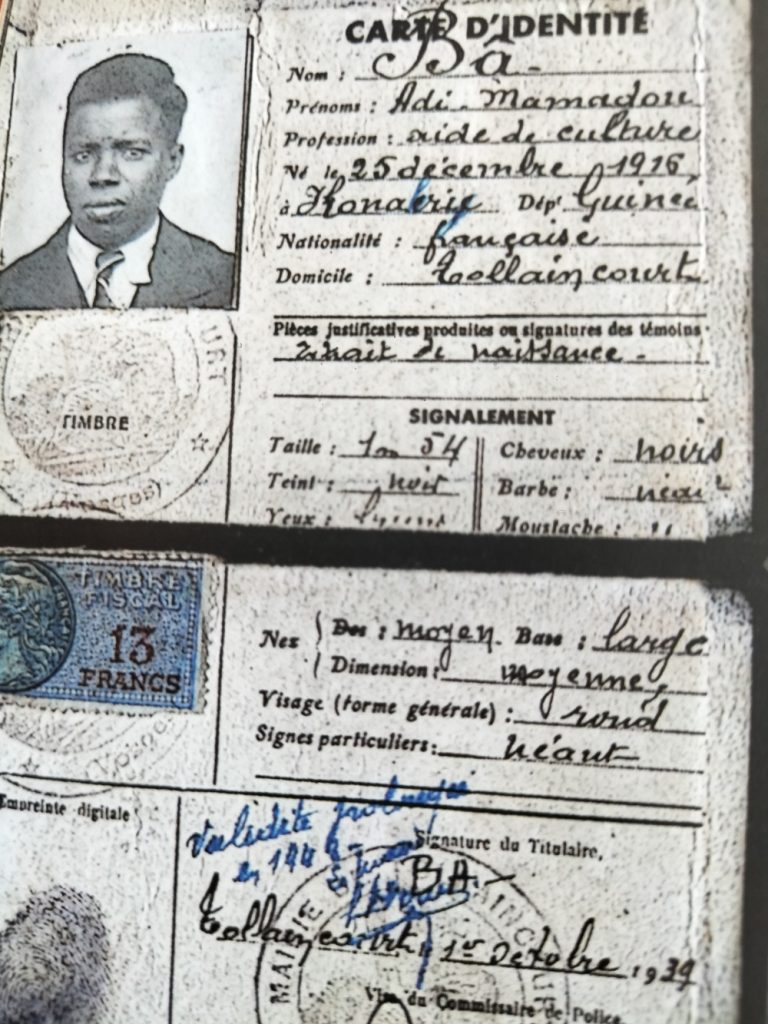 CARTE D'IDENTITÉ
Nom : Bâ -
Prénoms : Adi Mamadou
Profession : aide de culture
Né le 25 décembre 1916
à Konakrie Dépt Guinée
Nationalité : française
Domicile : Tollaincourt
Pièces justificatives produites ou signatures des témoins
extrait de naissance -
URT
TIMBRE
SIGNALEMENT
Taille : 1m 54 Cheveux : noirs
Teint : noir Barbe : néant
Yeux : Moustache : "
TIMBRE
FISCAL
13
FRANCS
Nez Dos : moyen. Base : large
Dimension : moyenne,
Visage (forme générale) : rond
Signes particuliers : néant
(Vosges)
Empreinte digitale
Validité
en
Signature du Titulaire,
BA -
Tollaincourt, 1er octobre 1939
MAIRIE
Visa du Commissaire de Police